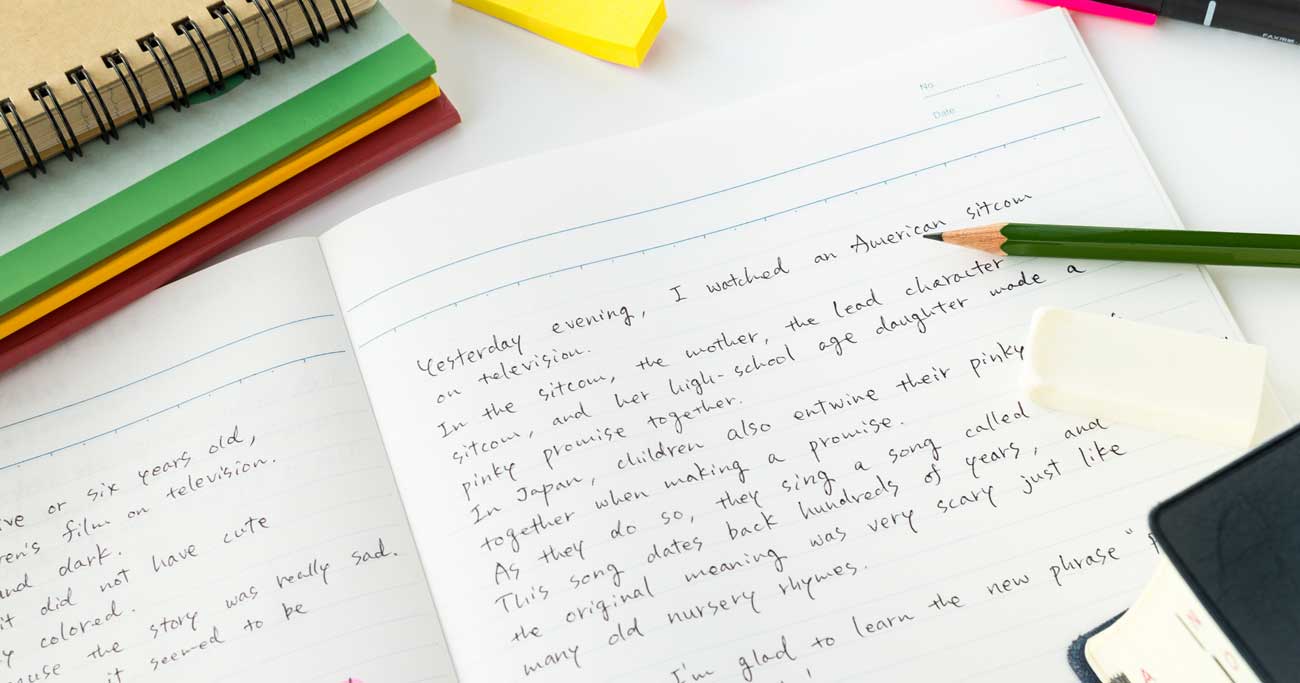 No.
Date
Yesterday evening, I watched an American sitcom
on television.
In the sitcom, the mother, the lead character
sitcom, and her high-school age daughter made a
pinky promise together.
In Japan, children also entwine their pinky
together when making a promise.
As they do so, they sing a song called
This song dates back hundreds of years, and
the original meaning was very scary just like
many old nursery rhymes.
I'm glad to learn the new phrase "
or six years old,
film on television.
and dark.
it did not have cute
colored.
the story was really sad.
it seemed to be